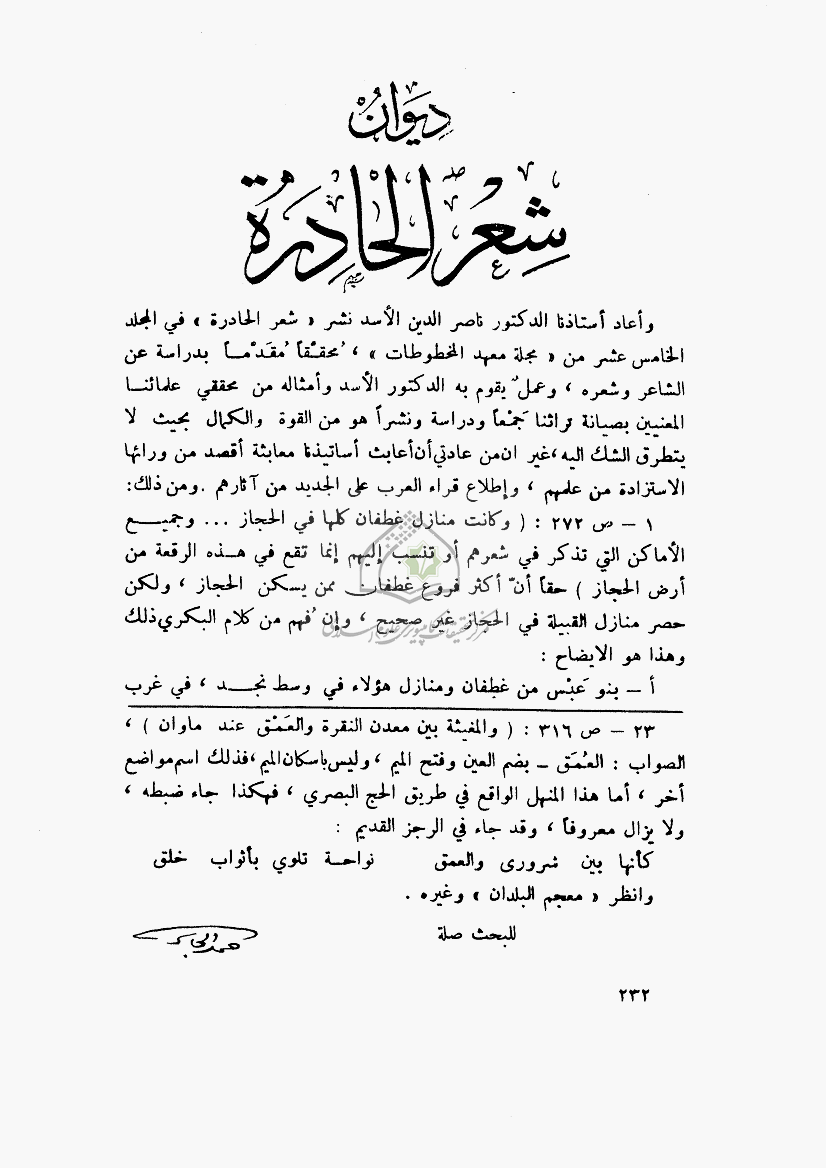 ديوان
شعر الحادرة
وأعاد أستاذنا الدكتور ناصر الدين الأسد نشر « شعر الحادرة » في المجلد
الخامس عشر من « مجلة معهد المخطوطات » ، مُحقّقاً مُقدّماً بدراسة عن
الشاعر وشعره ، وعملٌ يقوم به الدكتور الأسد وأمثاله من محققي علمائنا
المعنيين بصيانة تراثنا جَمْعاً ودراسة ونشراً هو من القوة والكمال بحيث لا
يتطرق الشك اليه ، غير ان من عادتي أن أعابث أساتيذنا معابثة أقصد من ورائها
الاستزادة من علمهم ، وإطلاع قراء العرب على الجديد من آثارهم . ومن ذلك :
١ – ص ٢٧٢ : ( وكانت منازل غطفان كلها في الحجاز ... وجميع
الأماكن التي تذكر في شعرهم أو تنسب إليهم إنما تقع في هذه الرقعة من
أرض الحجاز ) حقاً أنّ أكثر فروع غطفان ممن يسكن الحجاز ، ولكن
حصر منازل القبيلة في الحجاز غير صحيح ، وإن فُهم من كلام البكري ذلك
وهذا هو الايضاح :
أ – بنو عَبْس من غطفان ومنازل هؤلاء في وسط نجد ، في غرب
٢٣ – ص ٣١٦ : ( والمغيثة بين معدن النقرة والعَمْق عند ماوان ) ،
الصواب : العُمَق – بضم العين وفتح الميم ، وليس باسكان الميم ، فذلك اسم مواضع
أخر ، أما هذا المنهل الواقع في طريق الحج البصري ، فهكذا جاء ضبطه ،
ولا يزال معروفاً ، وقد جاء في الرجز القديم :
كأنها بين شرورى والعمق نواحة تلوي بأثواب خلق
وانظر « معجم البلدان » وغيره .
للبحث صلة
حمد الجاسر
٢٣٢